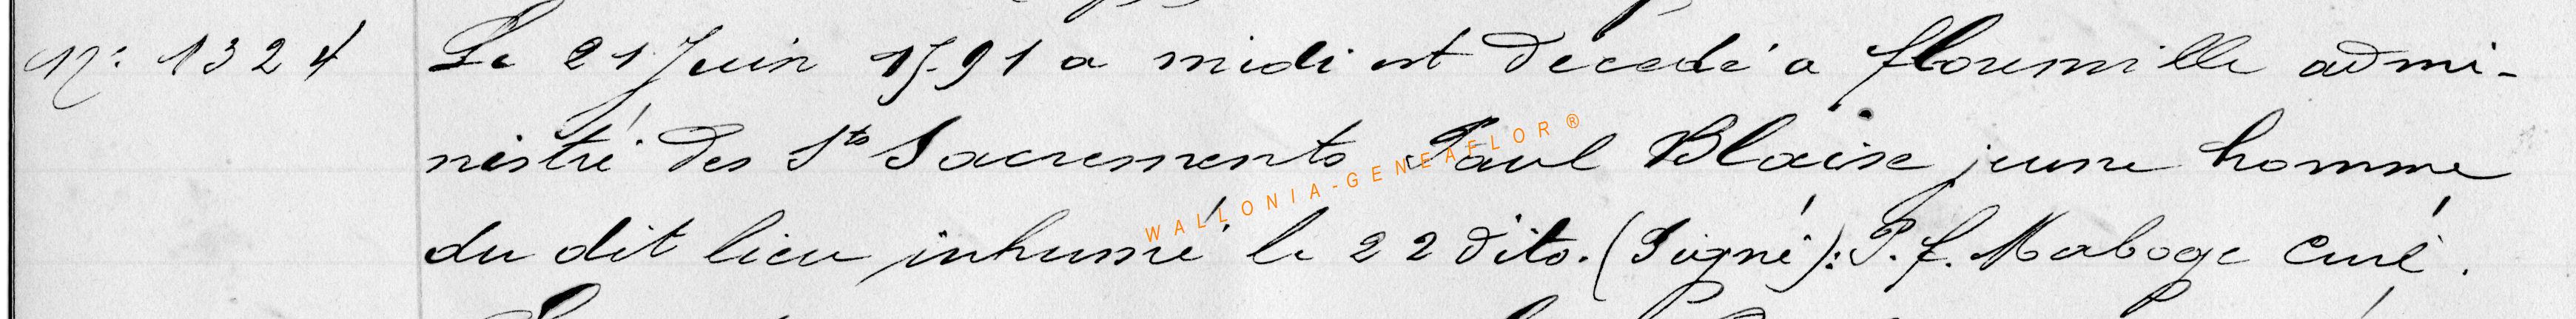 N°: 1324 Le 21 Juin 1791 a midi est décedé a florenville admi-
nistré des Sts Sacrements Paul Blaise jeune homme
du dit lieu inhumé le 22 dito. (Signé): P. f. Maboge Curé.
WALLONIA-GENEAFLOR®